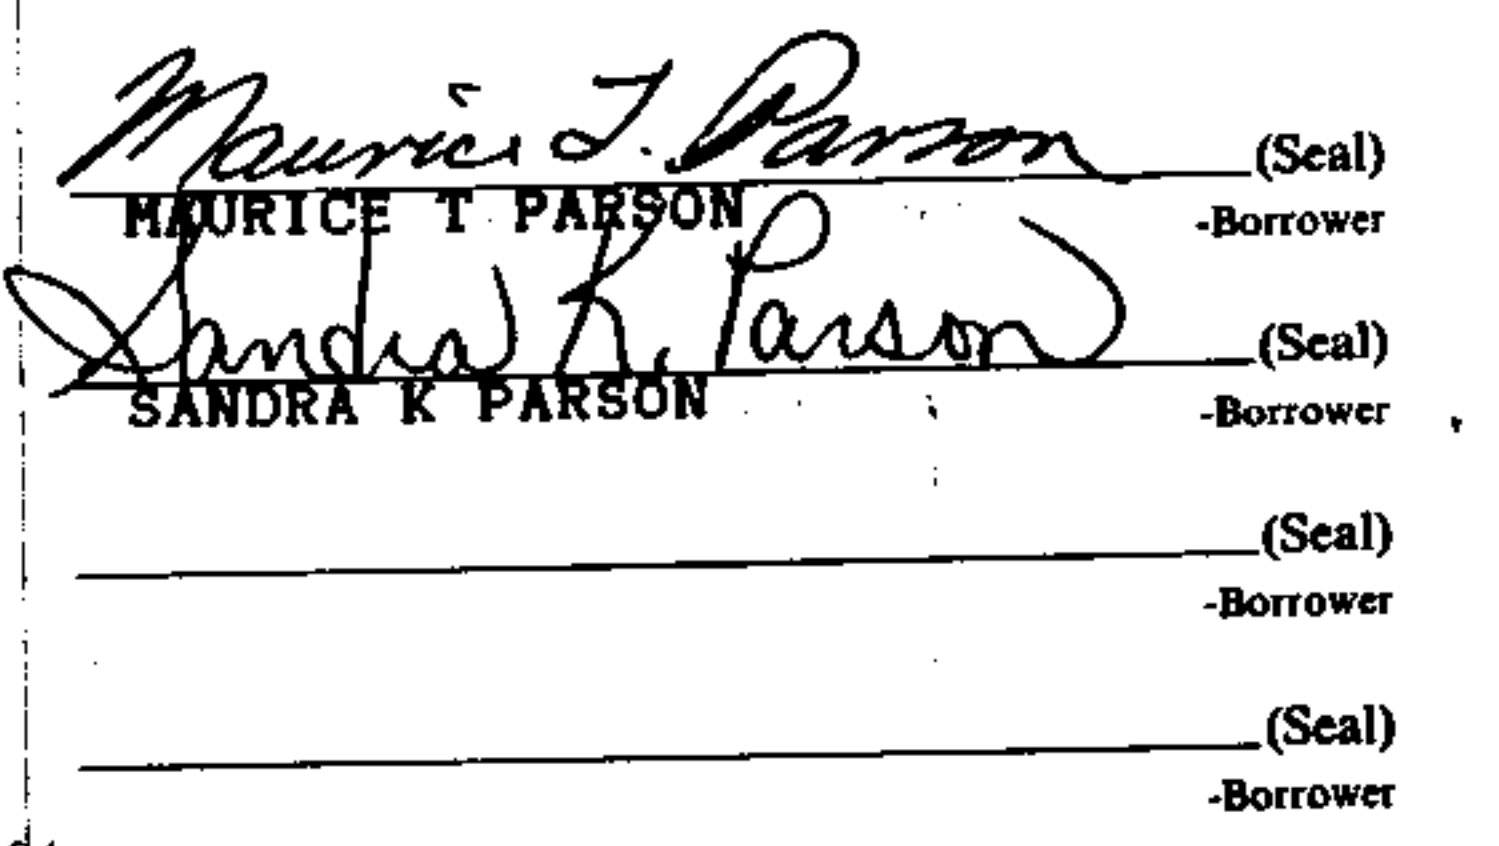 Maurice T. Parson (Seal)
MAURICE T PARSON -Borrower
Sandra K. Parson (Seal)
SANDRA K PARSON -Borrower
(Seal)
-Borrower
(Seal)
-Borrower